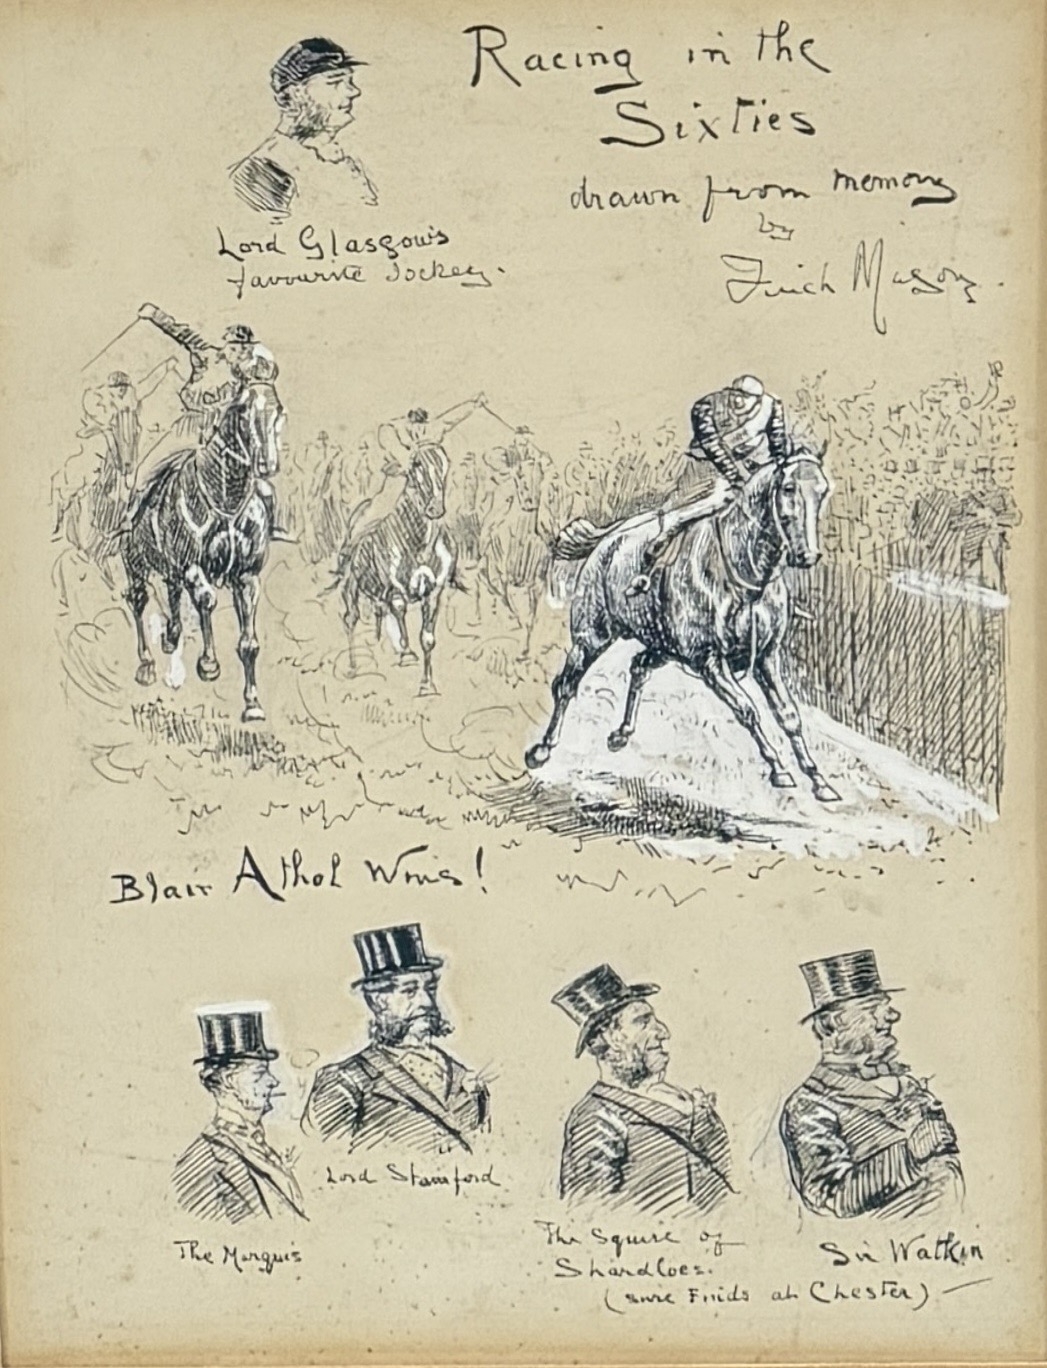 Racing in the
Sixties
drawn from memory
by
Finch Mason.
Lord Glasgow's
favourite Jockey.
Blair Athol Wins!
Lord Stamford
The Marquis
The Squire of
Shardloes.
Sir Watkin
(sure Finds at Chester)